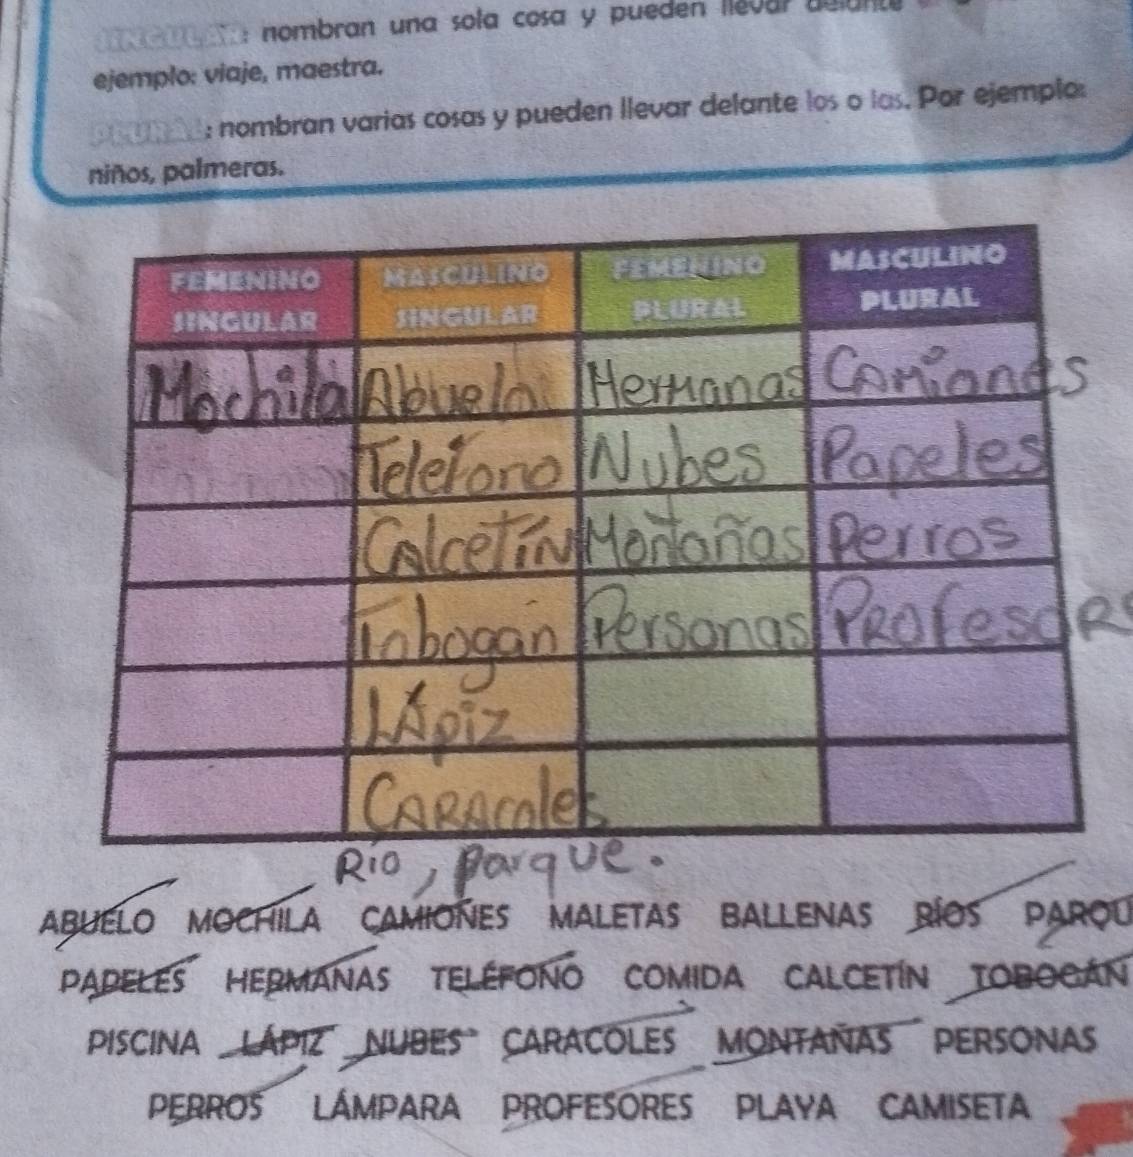 SINGULAR: nombran una sola cosa y pueden llevar delante
ejemplo: viaje, maestra.
PLURAL: nombran varias cosas y pueden llevar delante los o las. Por ejemplo:
niños, palmeras.
FEMENINO SINGULAR MASCULINO SINGULAR FEMENINO PLURAL MASCULINO PLURAL
Mochila Abuelo Hermanas Camiones
Teléfono Nubes Papeles
Calcetín Montañas Perros
Tobogán Personas Profesor
LÁpiz
CARAcoles
Río, parque.
ABUELO MOCHILA CAMIONES MALETAS BALLENAS RÍOS PARQU
PAPELES HERMANAS TELÉFONO COMIDA CALCETÍN TOBOGÁN
PISCINA LÁPIZ NUBES CARACOLES MONTAÑAS PERSONAS
PERROS LÁMPARA PROFESORES PLAYA CAMISETA